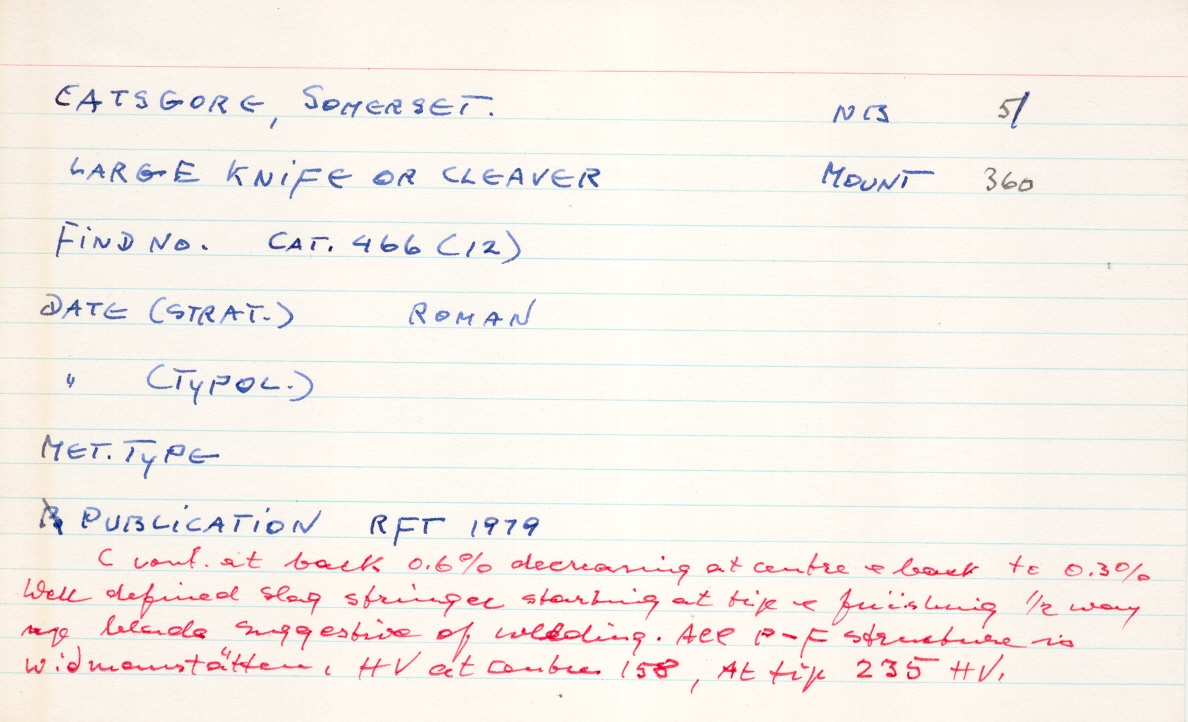 CATSGORE, SOMERSET. NB 51
LARGE KNIFE OR CLEAVER MOUNT 360
FIND NO. CAT. 466 (12)
DATE (STRAT.) ROMAN
" (TYPOL.)
MET. TYPE
PUBLICATION RFT 1979
C cont. at back 0.6% decreasing at centre & back to 0.3%
Well defined slag stringer starting at tip & finishing 1/2 way
up blade suggestive of welding. All P-F structure is
Widmanstätten. HV at centre 158, At tip 235 HV.